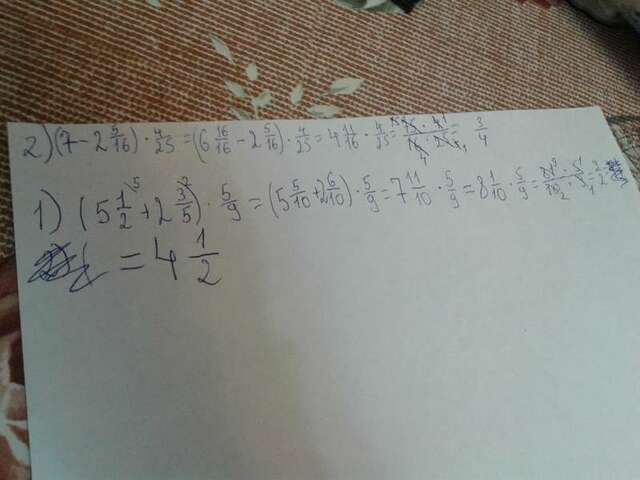 2) (7 - 2 5/16) · 4/25 = (6 16/16 - 2 5/16) · 4/25 = 4 11/16 · 4/25 = 75 · 4/16 · 25 = 3/4
1) (5 1/2 + 2 3/5) · 5/9 = (5 5/10 + 2 6/10) · 5/9 = 7 11/10 · 5/9 = 8 1/10 · 5/9 = 81 · 5/10 · 9 = 9/2
= 4 1/2